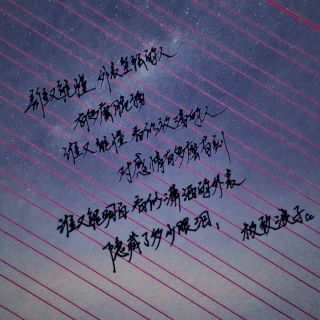 谁又能懂 外表坚强的人
有多么脆弱
谁又能懂 看似放荡的人
对感情有多么苛刻
谁又能明白 看似潇洒的外表
隐藏了多少眼泪,
放歌浪子a